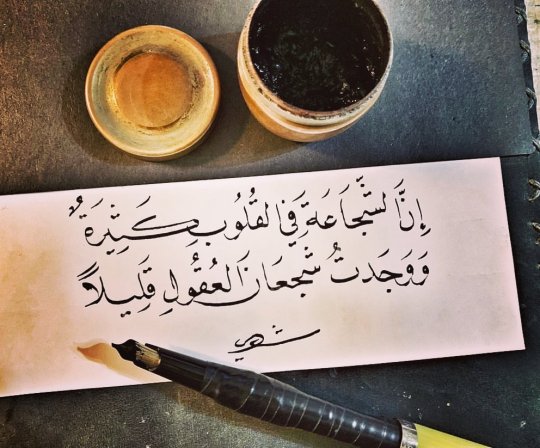 إِنَّ الشَّجَاعَةَ فِي القُلُوبِ كَثِيرَةٌ
وَوَجَدتُ شُجعَانَ العُقُولِ قَلِيلاً
شوقي